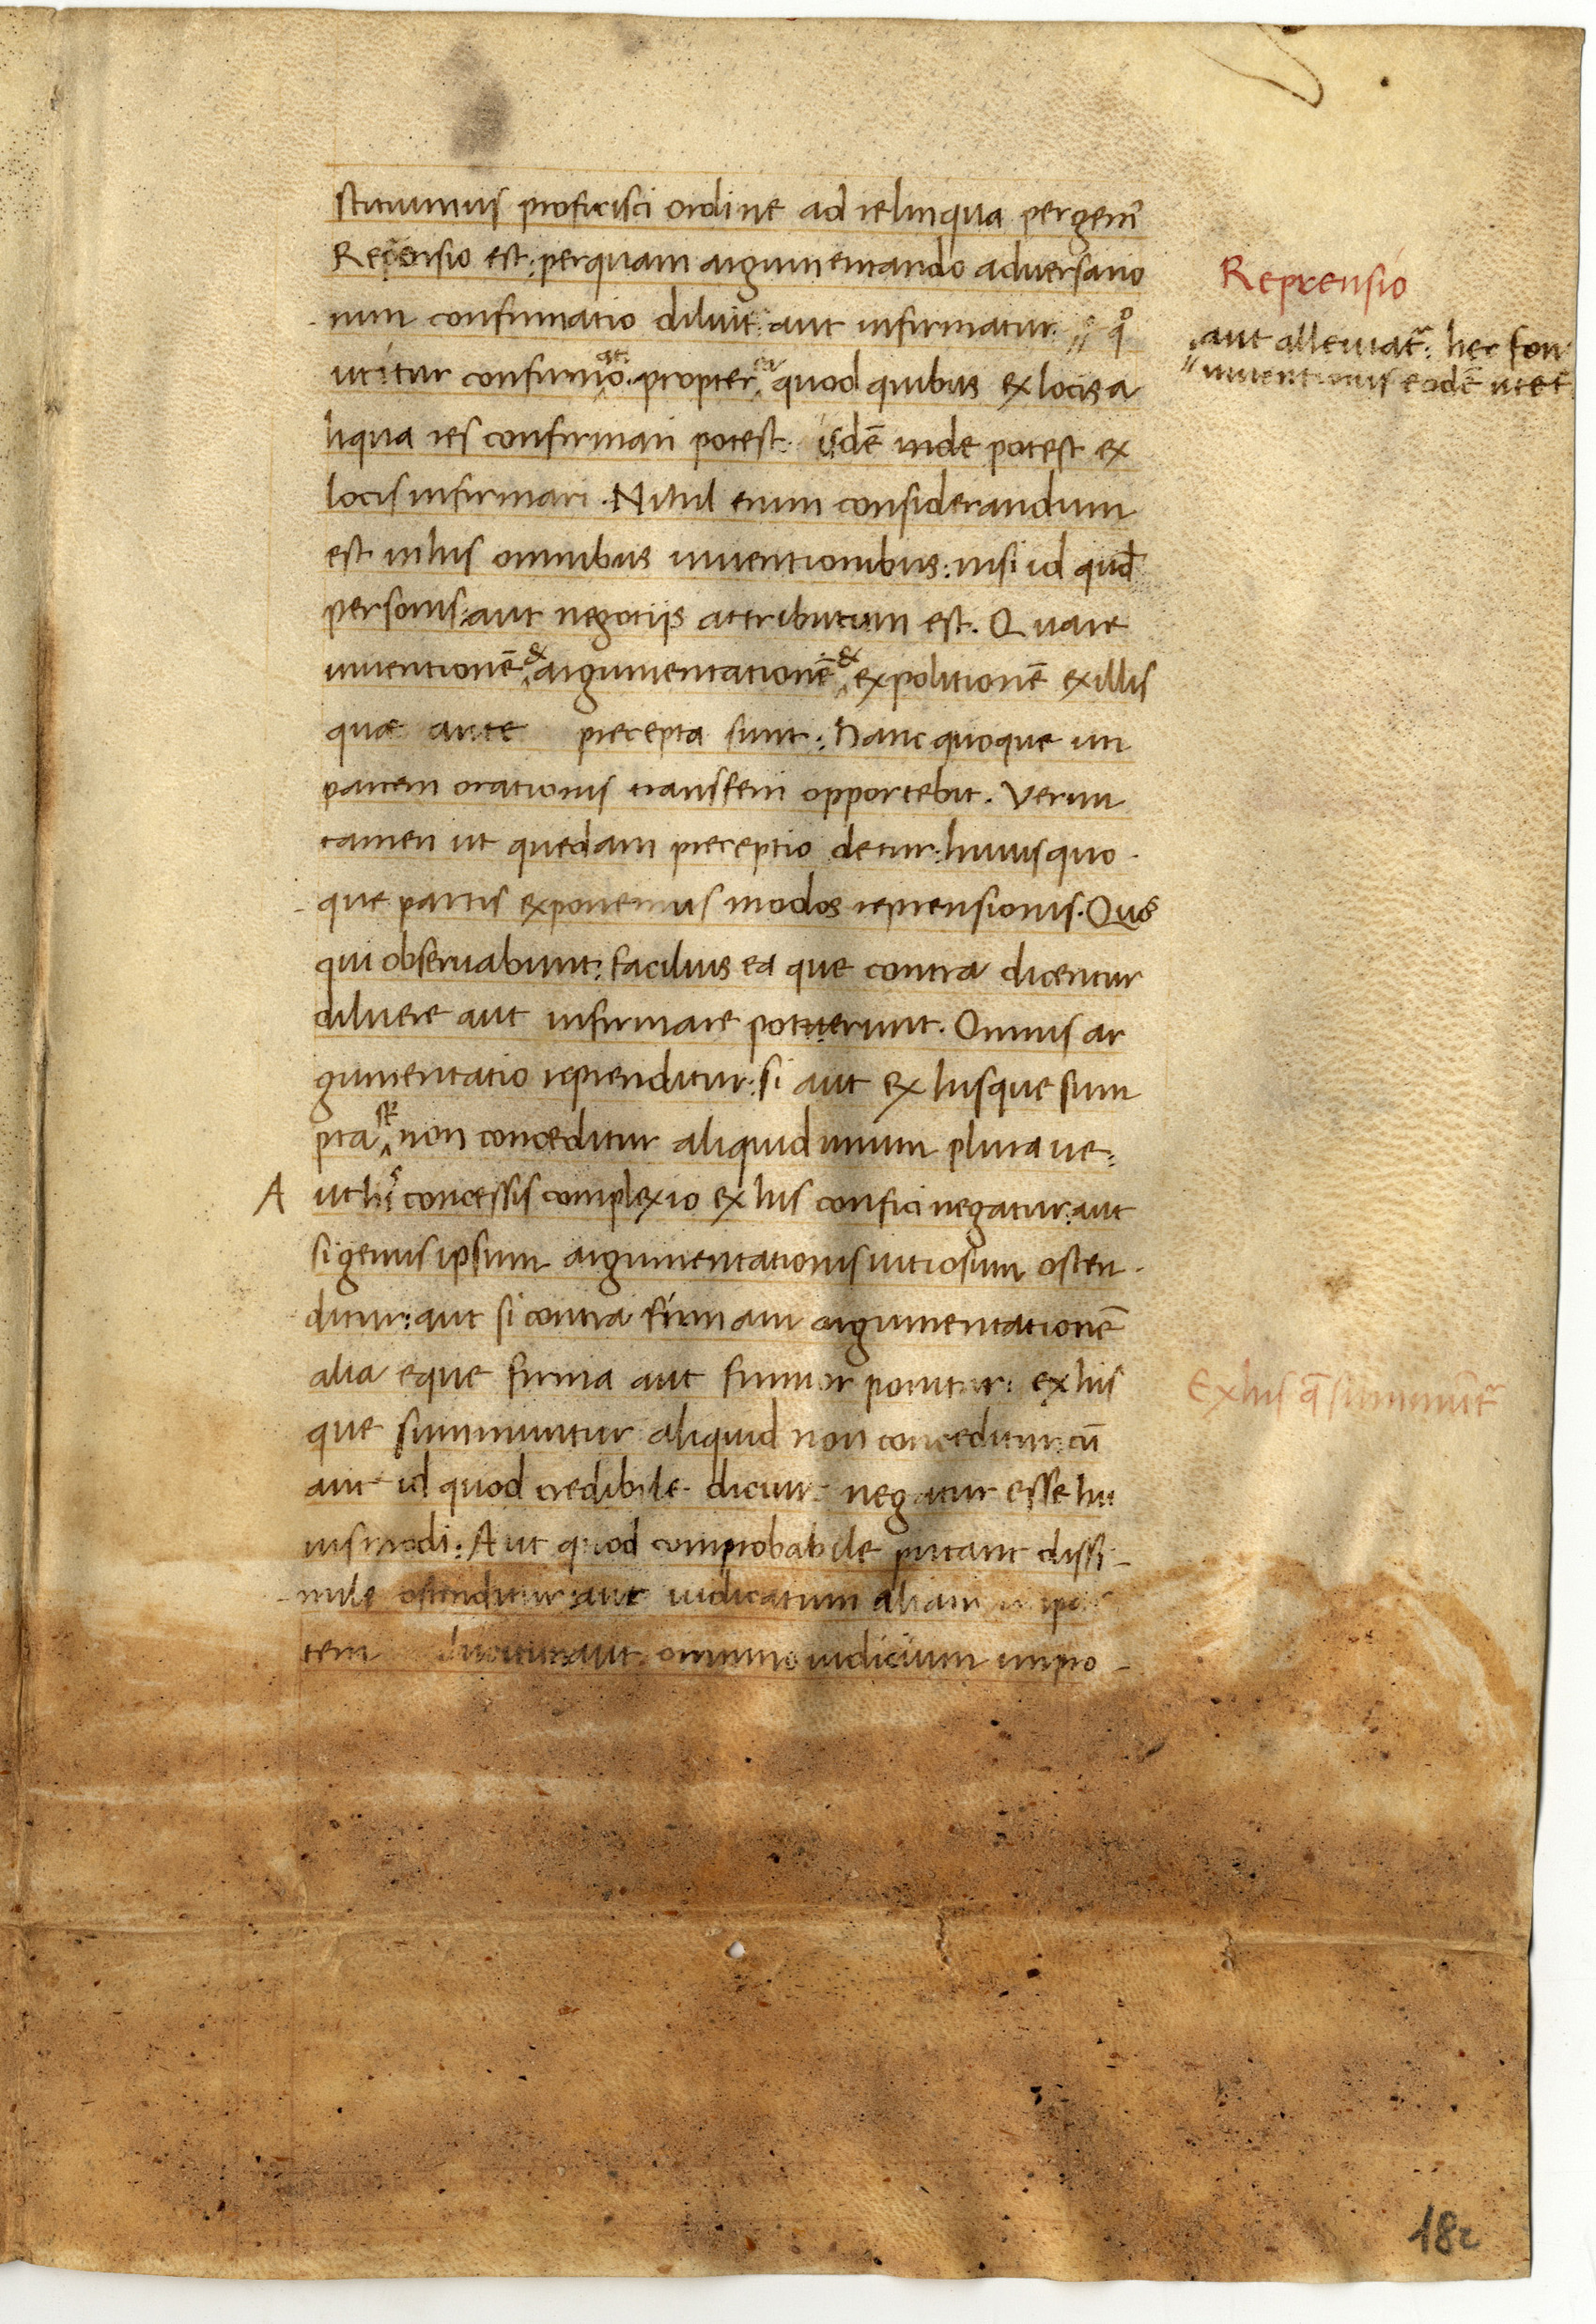 stituimus proficisci ordine ad relinqua pergem̄
Reprensio est: per quam argumentando adversario
Reprensio
rum confirmatio diluit̄ aut infirmatur // qº
// aut alleuiat̄: hec fon
inuentionis eodē utet̄
utitur confirmatio. propterea quod quibus ex locis a
liqua res confirmari potest. isdē inde potest ex
locis infirmari. Nihil enim considerandum
est in his omnibus inuentionibus: nisi id quod
personis: aut negotiis attributum est. Quare
inuentionē & argumentationē & expolitionē ex illis
que ante precepta sunt: hanc quoque in
partem orationis transferri opportebit. Verun
tamen ut quedam preceptio detur: huius quo
que partis exponemus modos reprensionis. Quos
qui obseruabunt: facilius ea que contra dicentur
diluere aut infirmare potuerunt. Omnis ar
gumentatio reprenditur: si aut ex his que sum
pta st̄ non conceditur aliquid unum plura ue:
A ut his concessis complexio ex his confici negatur: aut
si genus ipsum argumentationis uitiosum osten
ditur: aut si contra firmam argumentationē
alia eque firma aut firmior ponitur: ex his
Ex his q̄ summunt̄
que summuntur aliquid non conceditur: cū
aut id quod credibile dicitur negatur esse hu
iusmodi: Aut quod comprobabile putant dissi
mile ostenditur: aut iudicatum aliam
tem aut omnino iudicium impro
182